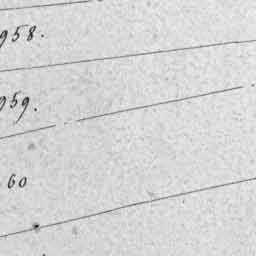 958.
959.
60